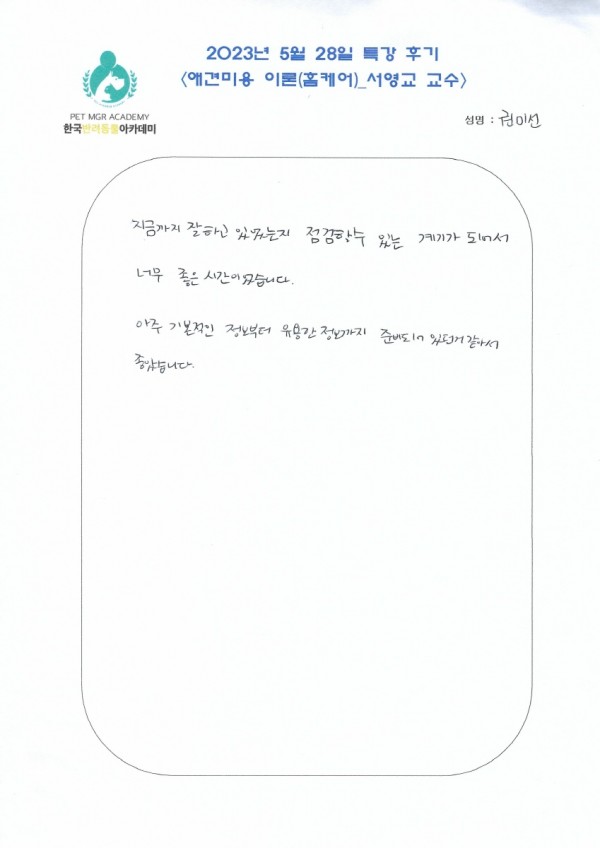 2023년 5월 28일 특강 후기
<애견미용 이론(홈케어)_서영교 교수>
PET MGR ACADEMY
한국반려동물아카데미
성명 : 권미선
지금까지 잘하고 있었는지 점검할수 있는 계기가 되어서
너무 좋은 시간이었습니다.
아주 기본적인 정보부터 유용한 정보까지 준비되어 있던거 같아서
좋았습니다.